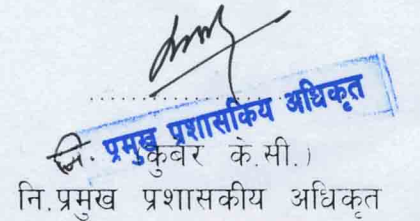 नि. प्रमुख प्रशासकिय अधिकृत
कुवेर के.सी.)
नि.प्रमुख प्रशासकीय अधिकृत